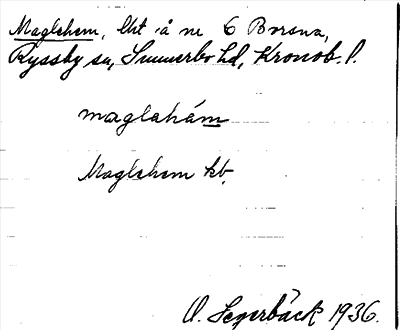 Maglehem, lht å nr 6 Borsna,
Ryssby sn, Sunnerbo hd, Kronob. l.
maglahám
Maglehem kb.
O. Segerbäck 1936.